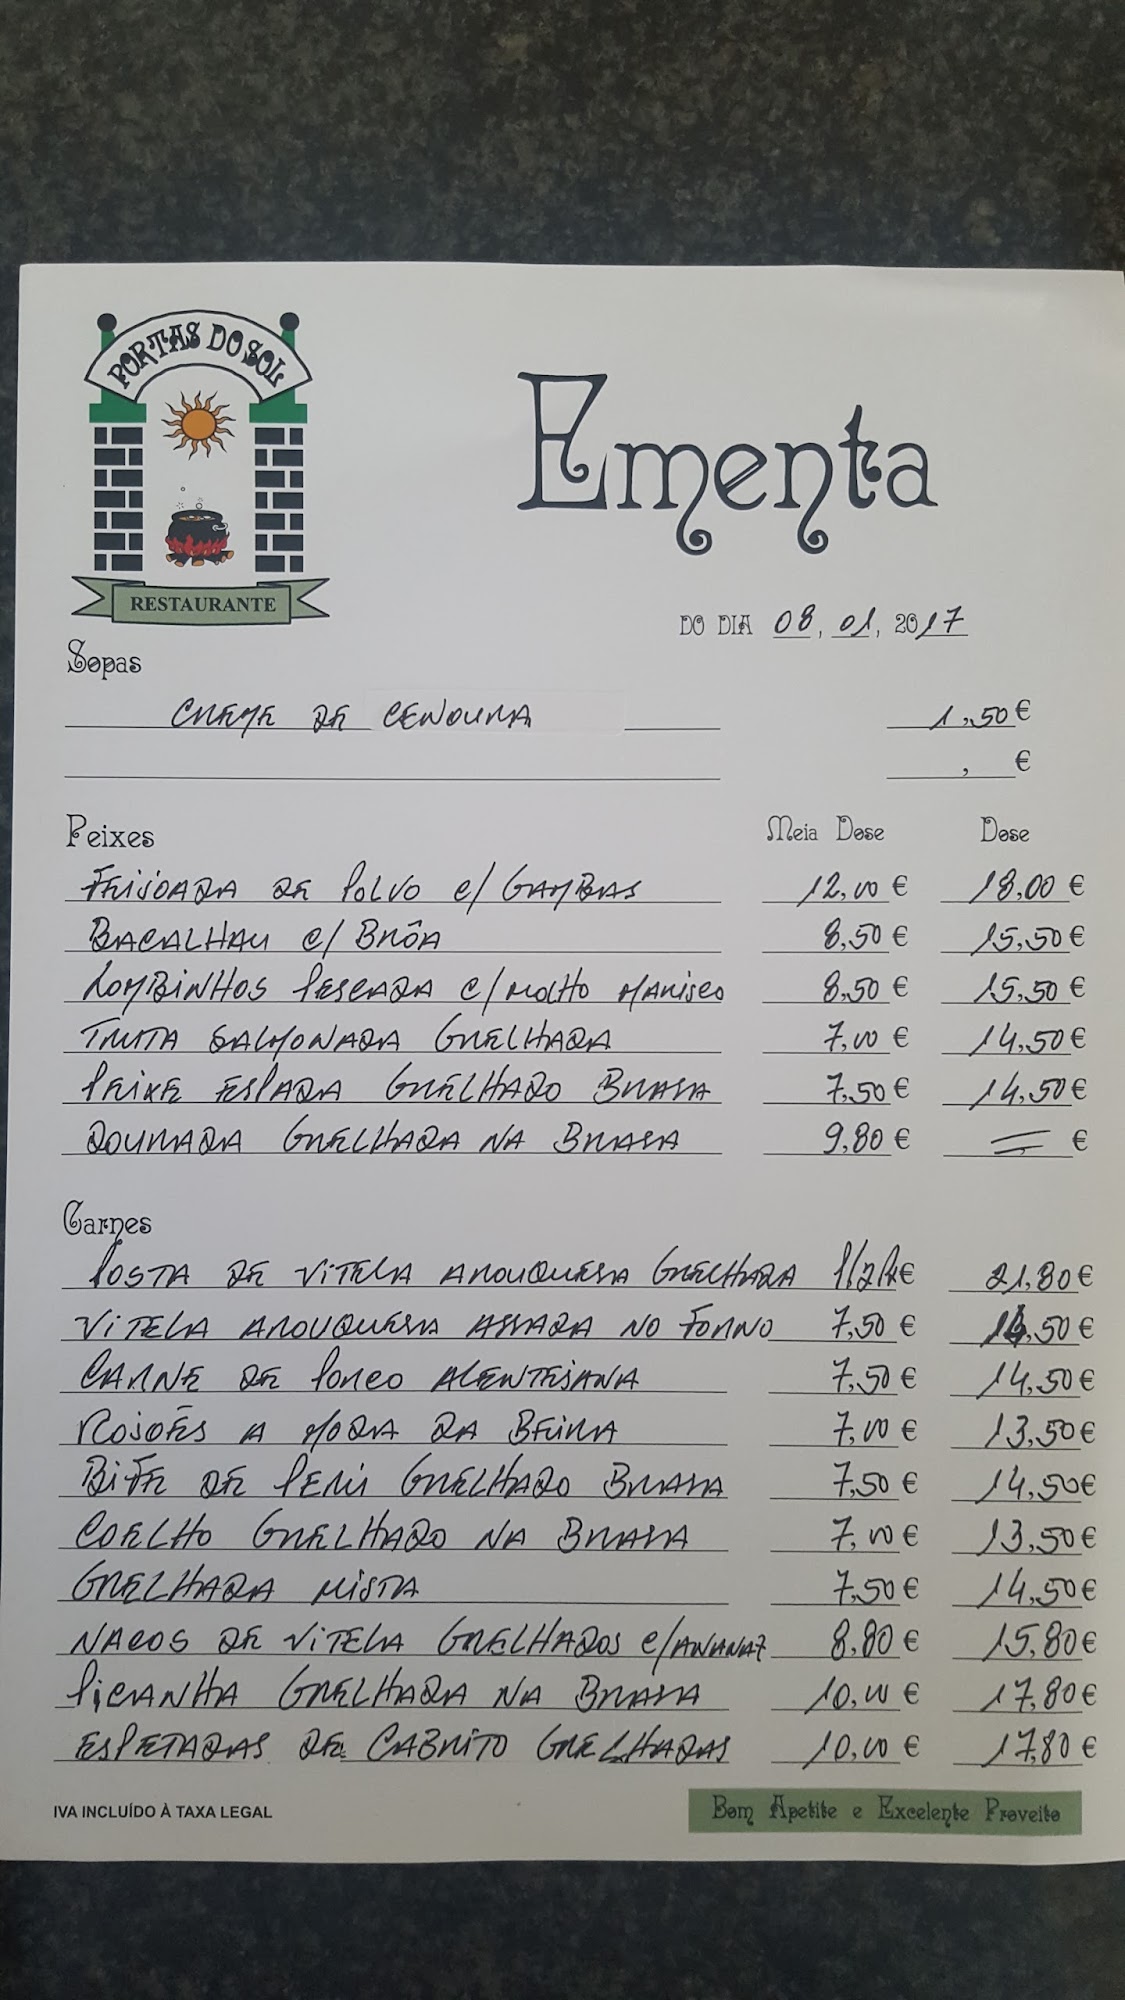 PORTAS DO SOL
RESTAURANTE
Ementa
DO DIA 08, 01, 2017
Sopas
CREME DE CENOURA 1,50 €
, €
Peixes Meia Dose Dose
FEIJOADA DE POLVO C/ GAMBAS 12,00 € 18,00 €
BACALHAU C/ BRÔA 8,50 € 15,50 €
LOMBINHOS PESCADA C/ MOLHO MARISCO 8,50 € 15,50 €
TRUTA SALMONADA GRELHADA 7,00 € 14,50 €
PEIXE ESPADA GRELHADO BRASA 7,50 € 14,50 €
DOURADA GRELHADA NA BRASA 9,80 € €
Carnes
POSTA DE VITELA AROUQUESA GRELHADA P/2P € 21,80 €
VITELA AROUQUESA ASSADA NO FORNO 7,50 € 14,50 €
CARNE DE PORCO ALENTEJANA 7,50 € 14,50 €
ROJÕES A MODA DA BEIRA 7,00 € 13,50 €
BIFE DE PERÚ GRELHADO BRASA 7,50 € 14,50 €
COELHO GRELHADO NA BRASA 7,00 € 13,50 €
GRELHADA MISTA 7,50 € 14,50 €
NACOS DE VITELA GRELHADOS C/ANANAZ 8,80 € 15,80 €
PICANHA GRELHADA NA BRASA 10,00 € 17,80 €
ESPETADAS DE CABRITO GRELHADAS 10,00 € 17,80 €
IVA INCLUÍDO À TAXA LEGAL
Bom Apetite e Excelente Proveito